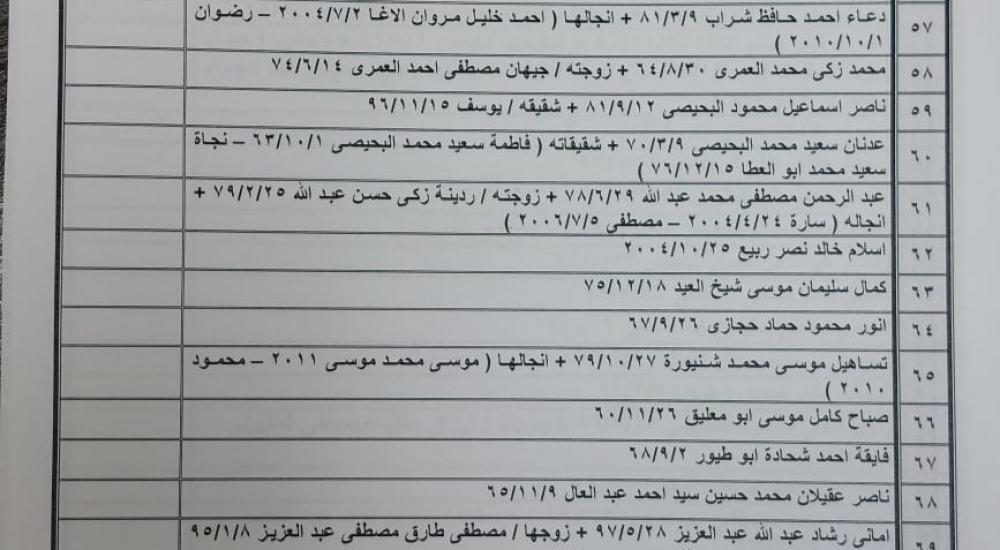 ٥٧ دعاء احمد حافظ شراب ٨١/٣/٩ + انجالها ( احمد خليل مروان الاغا ٢٠٠٤/٧/٢ – رضوان
٢٠١٠/١٠/١ )
٥٨ محمد زكى محمد العمرى ٦٤/٨/٣٠ + زوجته / جيهان مصطفى احمد العمرى ٧٤/٦/١٤
٥٩ ناصر اسماعيل محمود البحيصى ٨١/٩/١٢ + شقيقه / يوسف ٩٦/١١/١٥
٦٠ عدنان سعيد محمد البحيصى ٧٠/٣/٩ + شقيقاته ( فاطمة سعيد محمد البحيصى ٦٣/١٠/١ – نجاة
سعيد محمد ابو العطا ٧٦/١٢/١٥ )
٦١ عبد الرحمن مصطفى محمد عبد الله ٧٨/٦/٢٩ + زوجته / ردينة زكى حسن عبد الله ٧٩/٢/٢٥ +
انجاله ( سارة ٢٠٠٤/٤/٢٤ – مصطفى ٢٠٠٦/٧/٥ )
٦٢ اسلام خالد نصر ربيع ٢٠٠٤/١٠/٢٥
٦٣ كمال سليمان موسى شيخ العيد ٧٥/١٢/١٨
٦٤ انور محمود حماد حجازى ٦٧/٩/٢٦
٦٥ تساهيل موسى محمد شنيورة ٧٩/١٠/٢٧ + انجالها ( موسى محمد موسى ٢٠١١ – محمود
٢٠١٠ )
٦٦ صباح كامل موسى ابو معليق ٦٠/١١/٢٦
٦٧ فايقة احمد شحادة ابو طيور ٦٨/٩/٢
٦٨ ناصر عقيلان محمد حسين سيد احمد عبد العال ٦٥/١١/٩
٦٩ امانى رشاد عبد الله عبد العزيز ٩٧/٥/٢٨ + زوجها / مصطفى طارق مصطفى عبد العزيز ٩٥/١/٨